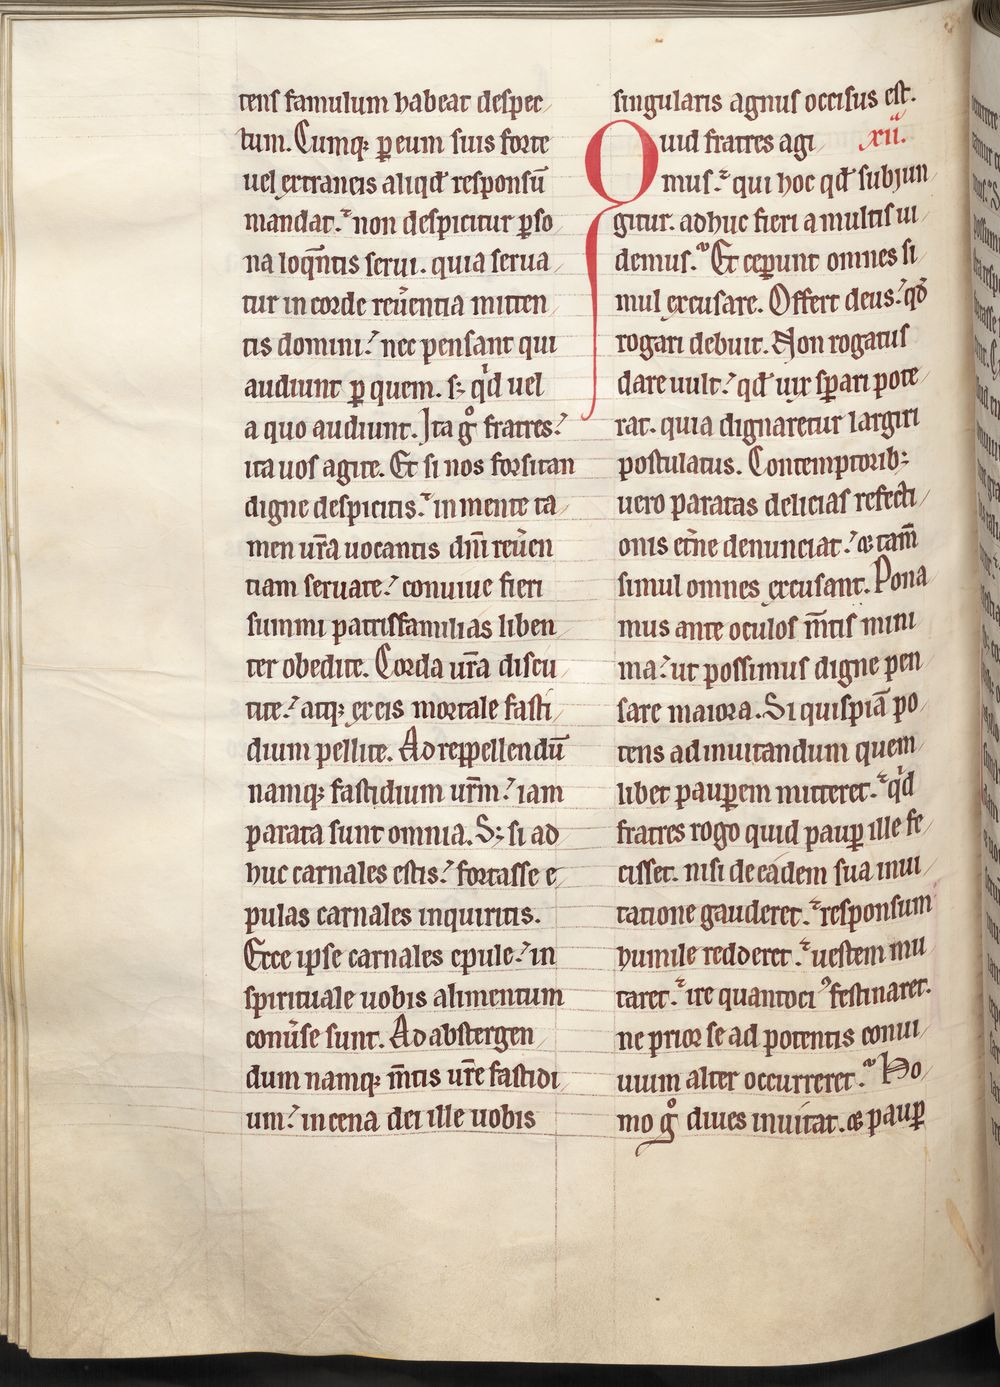 tens famulum habeat despec
tum. Cumq; p̱ eum suis forte
uel extraneis aliqđ responsū
mandat. non despicitur p̱so
na loq̄ntis serui. quia serua
tur in corde reu̓entia mitten
tis domini. nec pensant qui
audiunt p̱ quem. s; qͥd uel
a quo audiunt. Ita gͦ fratres.
ita uos agite. Et si nos forsitan
digne despicitis. in mente ta
men ur̄a uocantis dn̄i reu̓en
tiam seruate. conuiue fieri
summi patrisfamilias liben
ter obedite. Corda ur̄a discu
tite. atq; ex eis mortale fasti
dium pellite. Ad rep̱pellendū
namq; fastidium ur̄m. iam
parata sunt omnia. S; si ad
huc carnales estis. fortasse e
pulas carnales inquiritis.
Ecce ipse carnales epule. in
spirituale uobis alimentum
conu̓se sunt. Ad abstergen
dum namq; m̄tis ur̄e fastidi
um. in cena dei ille uobis
singularis agnus occisus est.
Quid fratres agi xii.
mus. qui hoc qđ subiun
gitur. adhuc fieri a multis ui
demus. Et cep̱unt omnes si
mul excusare. Offert deus. qđ
rogari debuit. Non rogatus
dare uult. qđ uix sp̱ari pote
rat. quia dignaretur largiri
postulatus. Contemptorib;
uero paratas delicias refecti
onis et̓ne denunciat. & tam̄
simul omnes excusant. Pona
mus ante oculos m̄tis mini
ma. ut possimus digne pen
sare maiora. Si quispiā po
tens ad inuitandum quem
libet paup̱em mitteret. qͥd
fratres rogo quid paup̱ ille fe
cisset. nisi de eadem sua inui
tatione gauderet. responsum
humile redderet. uestem mu
taret. ire quantociꝰ festinaret.
ne prior se ad potentis conui
uium alter occurreret. Ho
mo gͦ diues inuitat. & paup̱